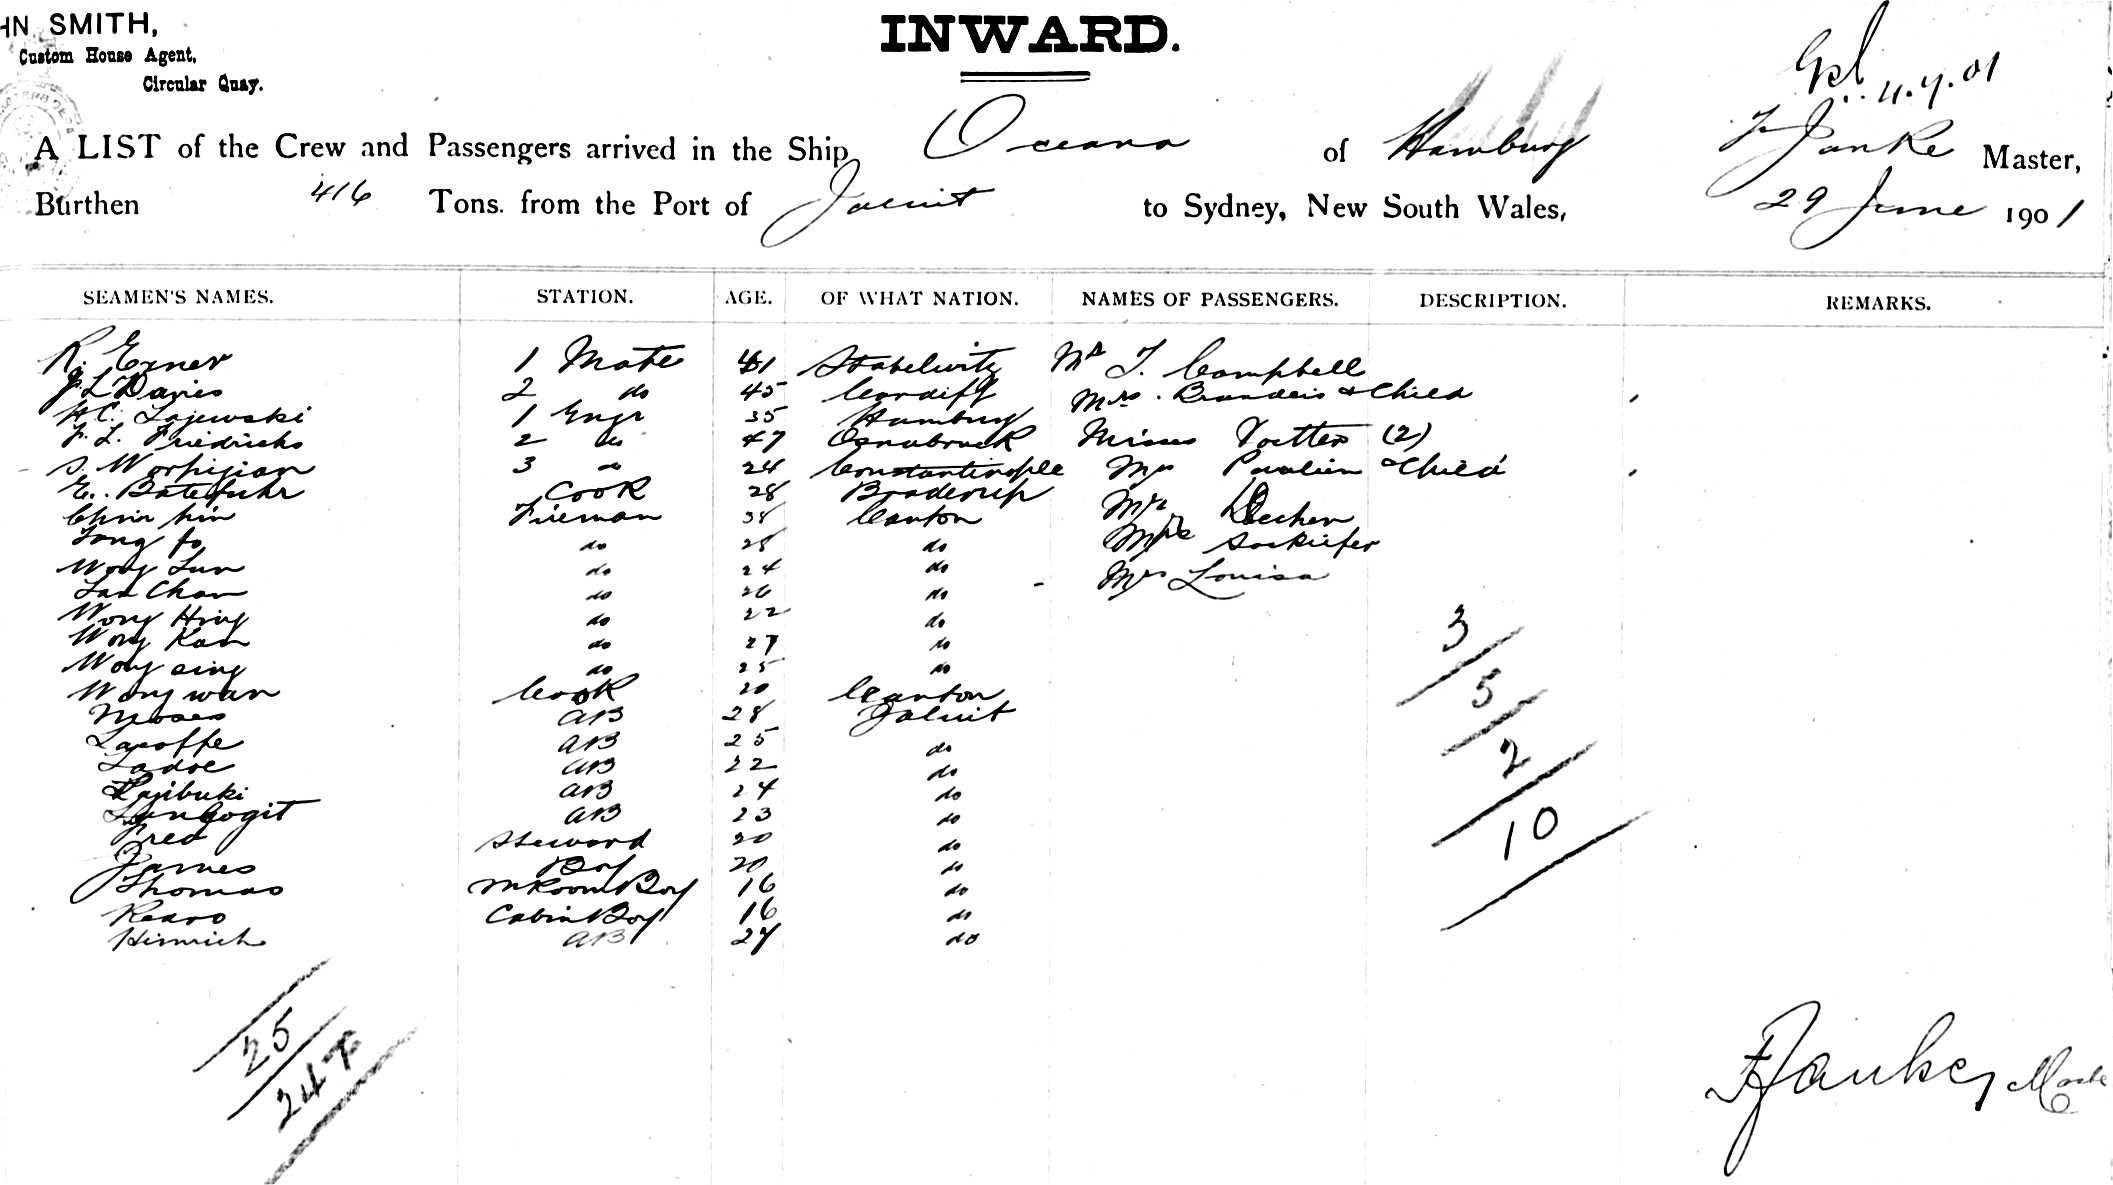 HN SMITH,
Custom House Agent,
Circular Quay.
INWARD.
4.7.01
A LIST of the Crew and Passengers arrived in the Ship Oceana of Hamburg F Janke Master,
Burthen 416 Tons. from the Port of Jaluit to Sydney, New South Wales, 29 June 1901
SEAMEN'S NAMES. STATION. AGE. OF WHAT NATION. NAMES OF PASSENGERS. DESCRIPTION. REMARKS.
R. Exner 1 Mate 41 Mr T. Campbell
J L Davies 2 do 45 Cardiff Mrs. Brandeis & Child
H C. Lajewski 1 Engr 35 Hamburg
F. L. Friedrichs 2 do 47 Osnabruck Misses (2)
S. 3 do 24 Constantinople & Child
E. Batefuhr Cook 28 Braderup Mr Decker
Chin Fireman 38 Canton
Tong fo do 28 do
Wong Sun do 24 do Mrs Louisa
Lau Chan do 26 do
Wong Hing do 22 do
Wong Kan do 27 do
Wong sing do 25 do
Wong wan Cook 20 Canton
Moses AB 28 Jaluit
Laroffe AB 25 do
Ladoe AB 22 do
Lajibuki AB 24 do
AB 23 do
Fred Steward 20 do
James Boy 20 do
Thomas MRoom Boy 16 do
Cabin Boy 16 do
Hinrich AB 27 do
3
5
2
10
25
24
F Janke, Master